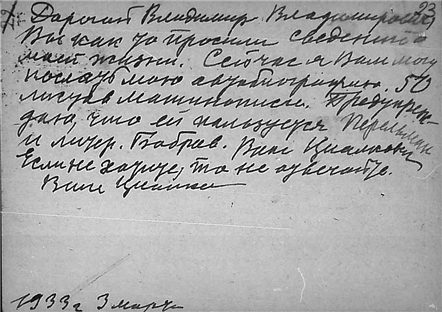 Дорогой Владимир Владимирович, 93
Вы как то просили сведений о
моей жизни. Сейчас я Вам могу
послать мою автобиографию. 50
листов машинописи. Предупреж-
даю, что ей пользуется Перельман
и литер. Бобров. Ваш Циолковский
Если не хотите, то не отвечайте.
Ваш Циолк
1933 г 3 марта